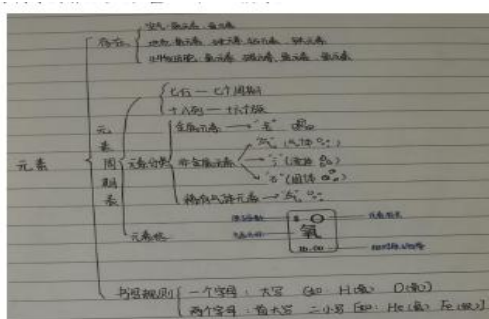 存在
空气:氮元素、氧元素
地壳:氧元素、硅元素、铝元素、铁元素
元素
元素周期表
七行 — 七个周期
十八列 — 十六个族
元素分类
金属元素 → "钅"
非金属元素
"气" (气体)
"氵" (液体)
"石" (固体)
稀有气体元素 → "气"
元素格
8 O
氧
16.00
书写规则
一个字母:大写 Eg: H(氢) O(氧)
两个字母:首大写 二小写 Eg: He(氦) Fe(铁)